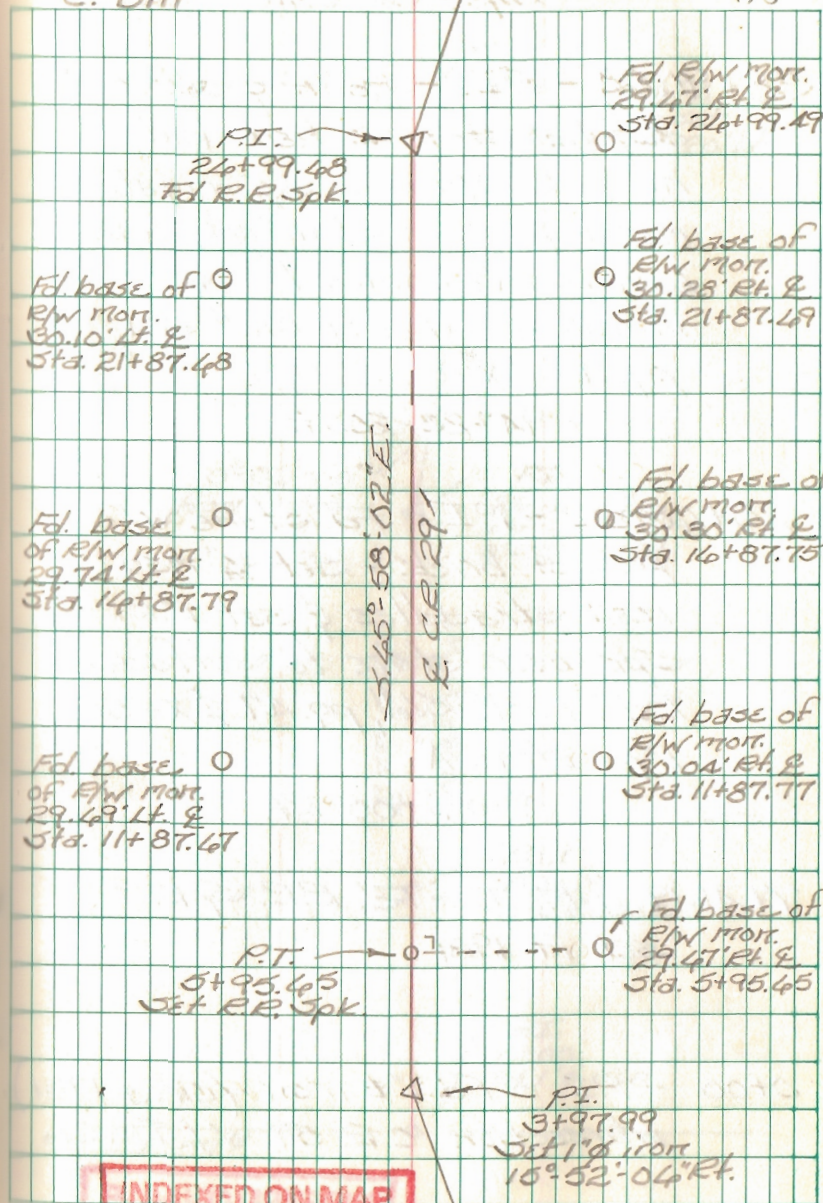 Fd. R/W mon.
29.67' Rt. ℄
Sta. 26+99.49
P.I.
26+99.68
Fd. R.R. Spk.
Fd. base of
R/W mon.
30.28' Rt. ℄
Sta. 21+87.69
Fd. base of
R/W mon.
30.10' Lt. ℄
Sta. 21+87.68
S.65°-58'-02"E.
℄ C.R. 29
Fd. base of
R/W mon.
30.30' Rt. ℄
Sta. 16+87.75
Fd. base
of R/W mon.
29.74' Lt. ℄
Sta. 16+87.79
Fd. base of
R/W mon.
30.04' Rt. ℄
Sta. 11+87.77
Fd. base
of R/W mon.
29.69' Lt. ℄
Sta. 11+87.67
Fd. base of
R/W mon.
29.67' Rt. ℄
Sta. 5+95.65
P.T.
5+95.65
Set R.R. Spk.
P.I.
3+97.99
Set 1"ø iron
15°-52'-06"Rt.
INDEXED ON MAP